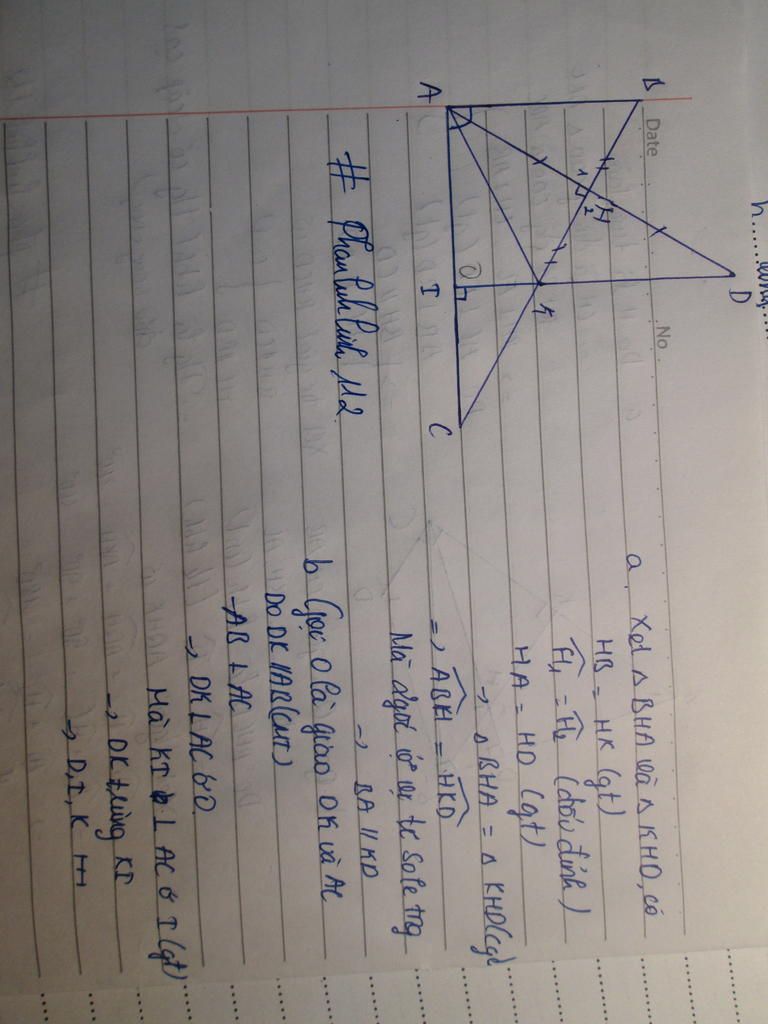 h.......ường....
Date
No
B
A
H
1
2
D
K
O
I
C
# Phan Linh Linh M2
a, Xét Δ BHA và Δ KHD, có
HB = HK (gt)
Ĥ1 = Ĥ2 (đối đỉnh)
HA = HD (gt)
→ Δ BHA = Δ KHD(cgc)
=> ABH = HKD
Mà 2 góc ở vị trí sole trg
→ BA // KD
b Gọi O là giao DK và AC
Do DK // AB (cmt)
- AB ⊥ AC
→ DK ⊥ AC ở O.
Mà KI ⊥ AC ở I (gt)
→ DK trùng KI
→ D, I, K thh